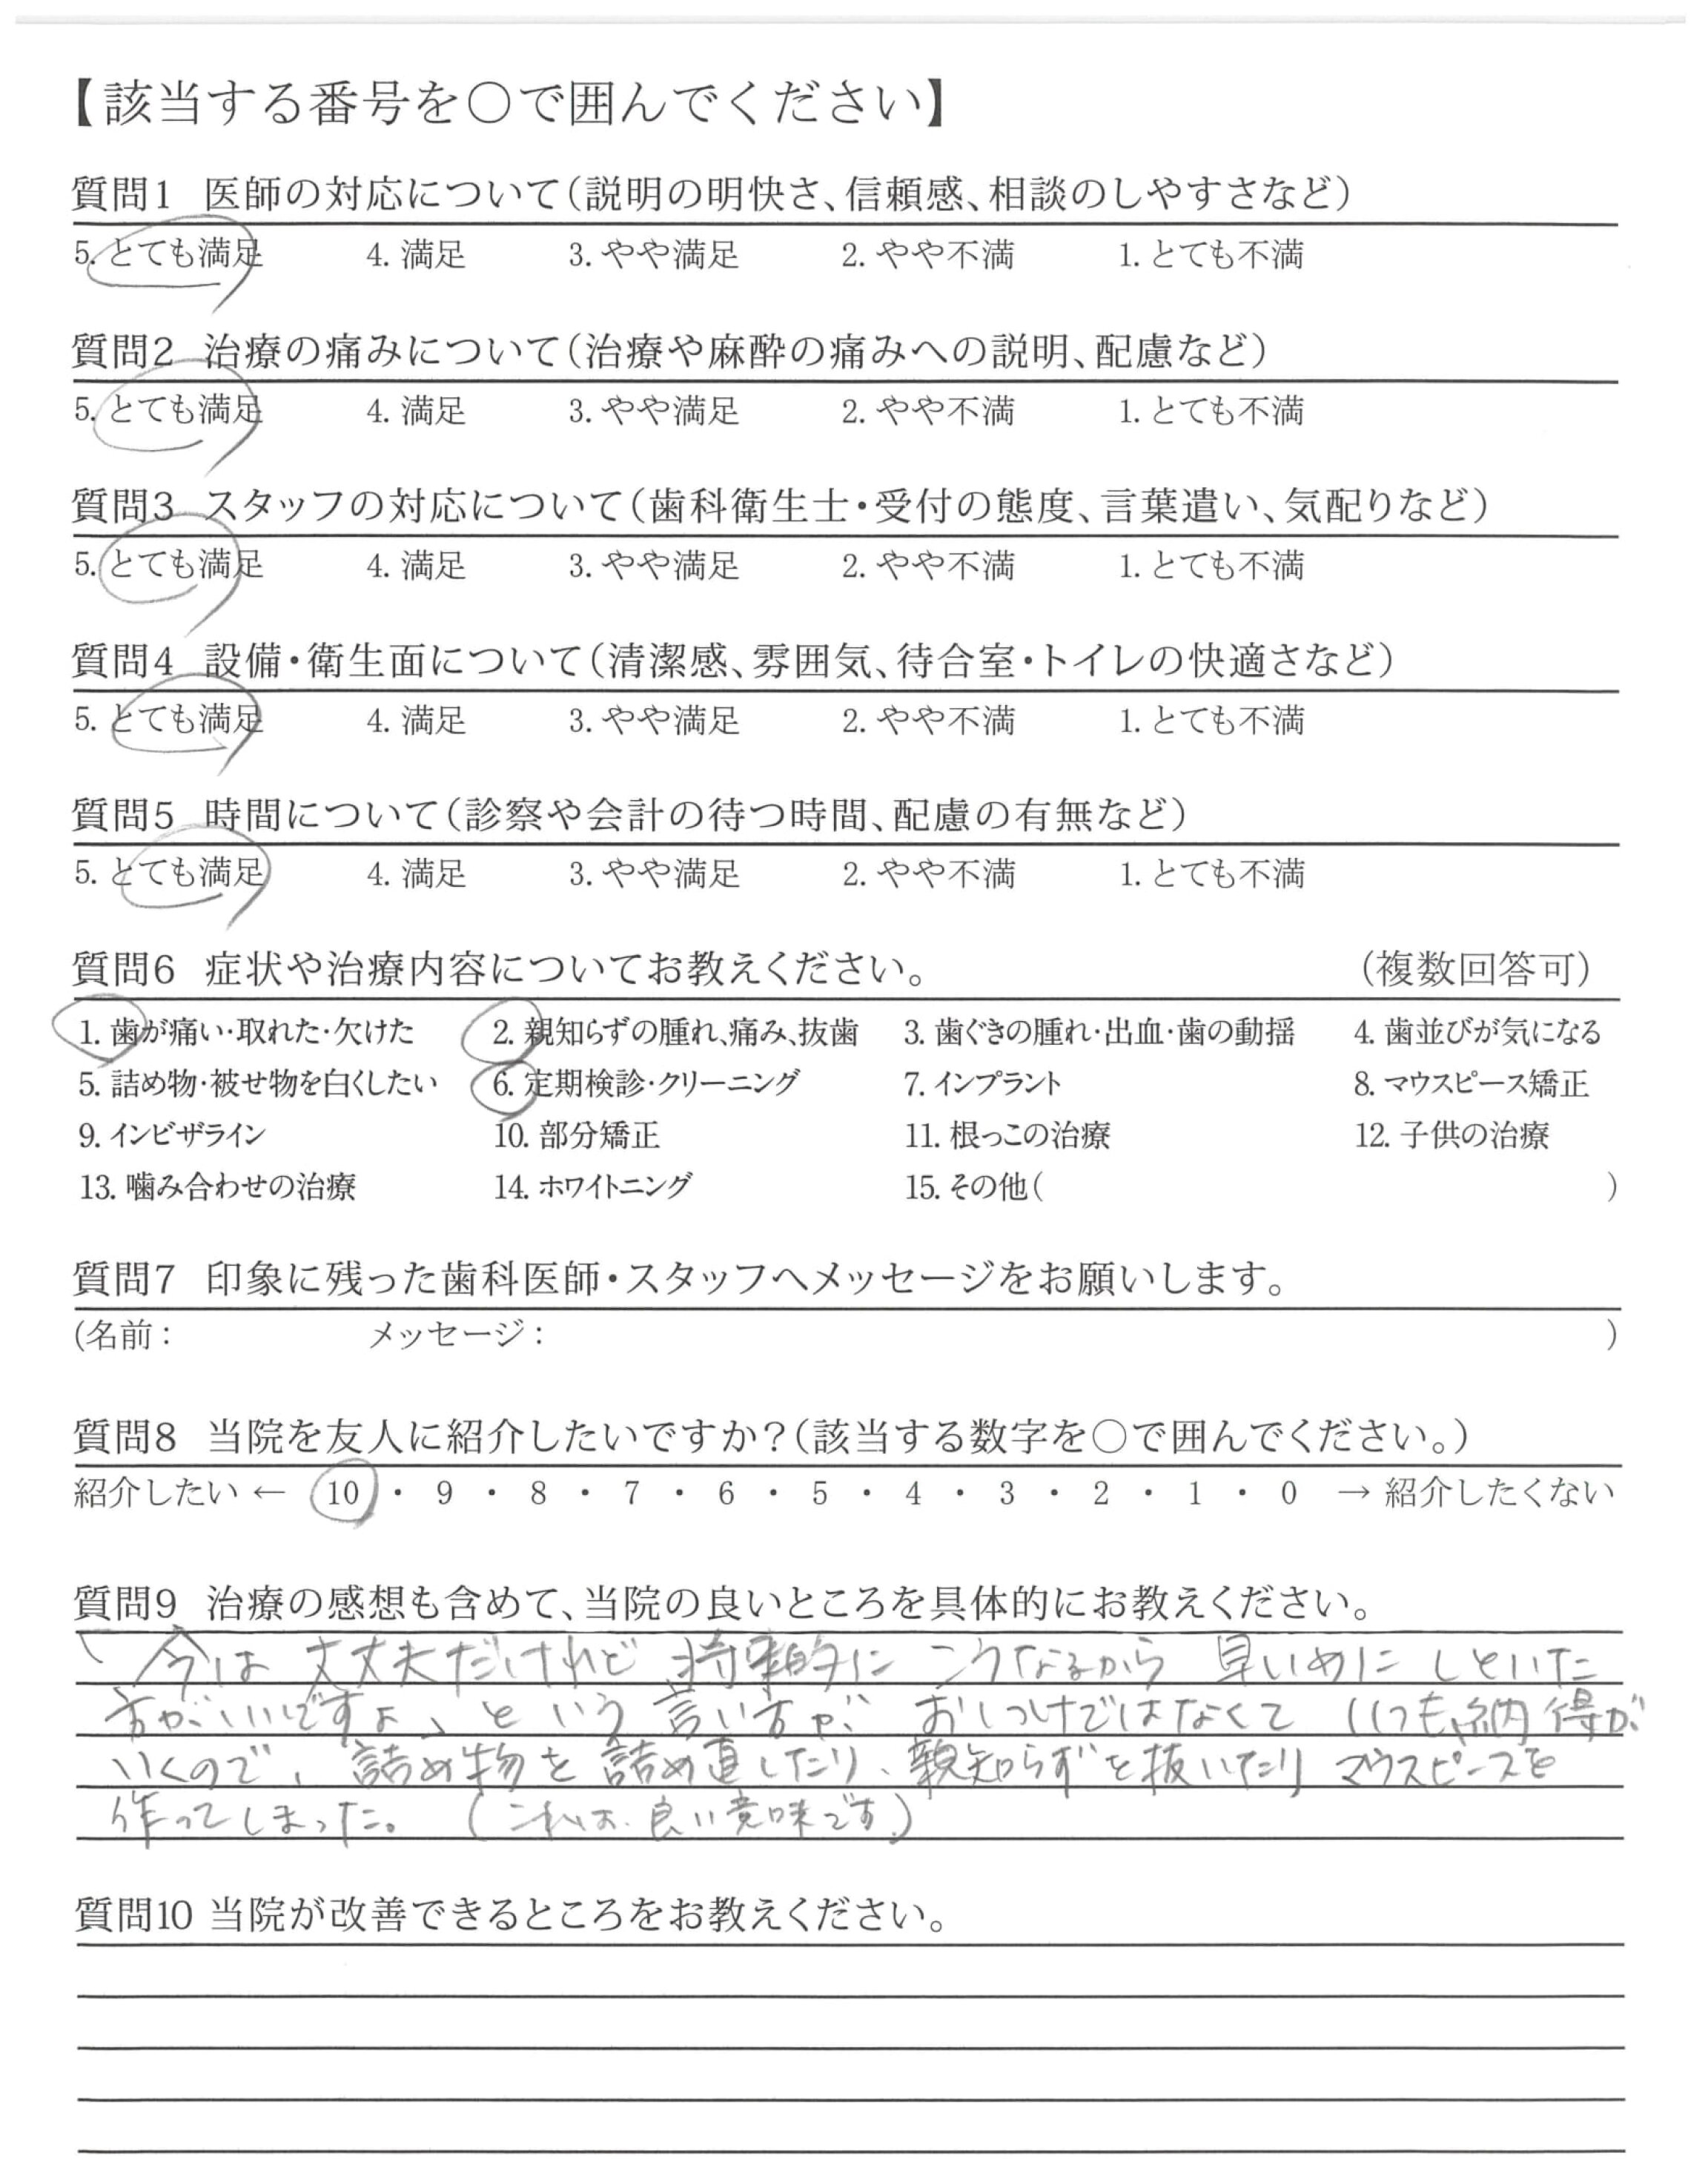 【該当する番号を○で囲んでください】
質問1 医師の対応について(説明の明快さ、信頼感、相談のしやすさなど)
5. とても満足 4. 満足 3. やや満足 2. やや不満 1. とても不満
質問2 治療の痛みについて(治療や麻酔の痛みへの説明、配慮など)
5. とても満足 4. 満足 3. やや満足 2. やや不満 1. とても不満
質問3 スタッフの対応について(歯科衛生士・受付の態度、言葉遣い、気配りなど)
5. とても満足 4. 満足 3. やや満足 2. やや不満 1. とても不満
質問4 設備・衛生面について(清潔感、雰囲気、待合室・トイレの快適さなど)
5. とても満足 4. 満足 3. やや満足 2. やや不満 1. とても不満
質問5 時間について(診察や会計の待つ時間、配慮の有無など)
5. とても満足 4. 満足 3. やや満足 2. やや不満 1. とても不満
質問6 症状や治療内容についてお教えください。 (複数回答可)
1. 歯が痛い・取れた・欠けた 2. 親知らずの腫れ、痛み、抜歯 3. 歯ぐきの腫れ・出血・歯の動揺 4. 歯並びが気になる
5. 詰め物・被せ物を白くしたい 6. 定期検診・クリーニング 7. インプラント 8. マウスピース矯正
9. インビザライン 10. 部分矯正 11. 根っこの治療 12. 子供の治療
13. 噛み合わせの治療 14. ホワイトニング 15. その他( )
質問7 印象に残った歯科医師・スタッフへメッセージをお願いします。
(名前: メッセージ: )
質問8 当院を友人に紹介したいですか?(該当する数字を○で囲んでください。)
紹介したい ← 10 ・ 9 ・ 8 ・ 7 ・ 6 ・ 5 ・ 4 ・ 3 ・ 2 ・ 1 ・ 0 → 紹介したくない
質問9 治療の感想も含めて、当院の良いところを具体的にお教えください。
「今は大丈夫だけれど 将来的に こうなるから 早いめに しといた
方がいいですよ」という言い方が、おしつけではなくて いつも納得が
いくので、詰め物を詰め直したり、親知らずを抜いたり マウスピースを
作ってしまった。(これは、良い意味です。)
質問10 当院が改善できるところをお教えください。